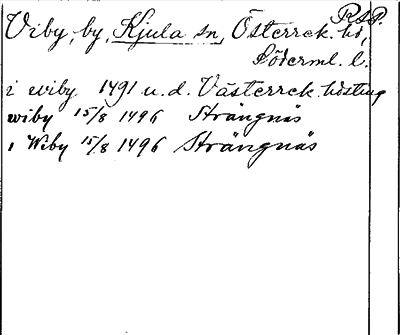 R.S.P.
Viby, by, Kjula sn, Österrek. hd,
Söderml. l.
i wiby 1491 u. d. Västerrek. hösting
wiby 15/8 1496 Strängnäs
i Wiby 15/8 1496 Strängnäs